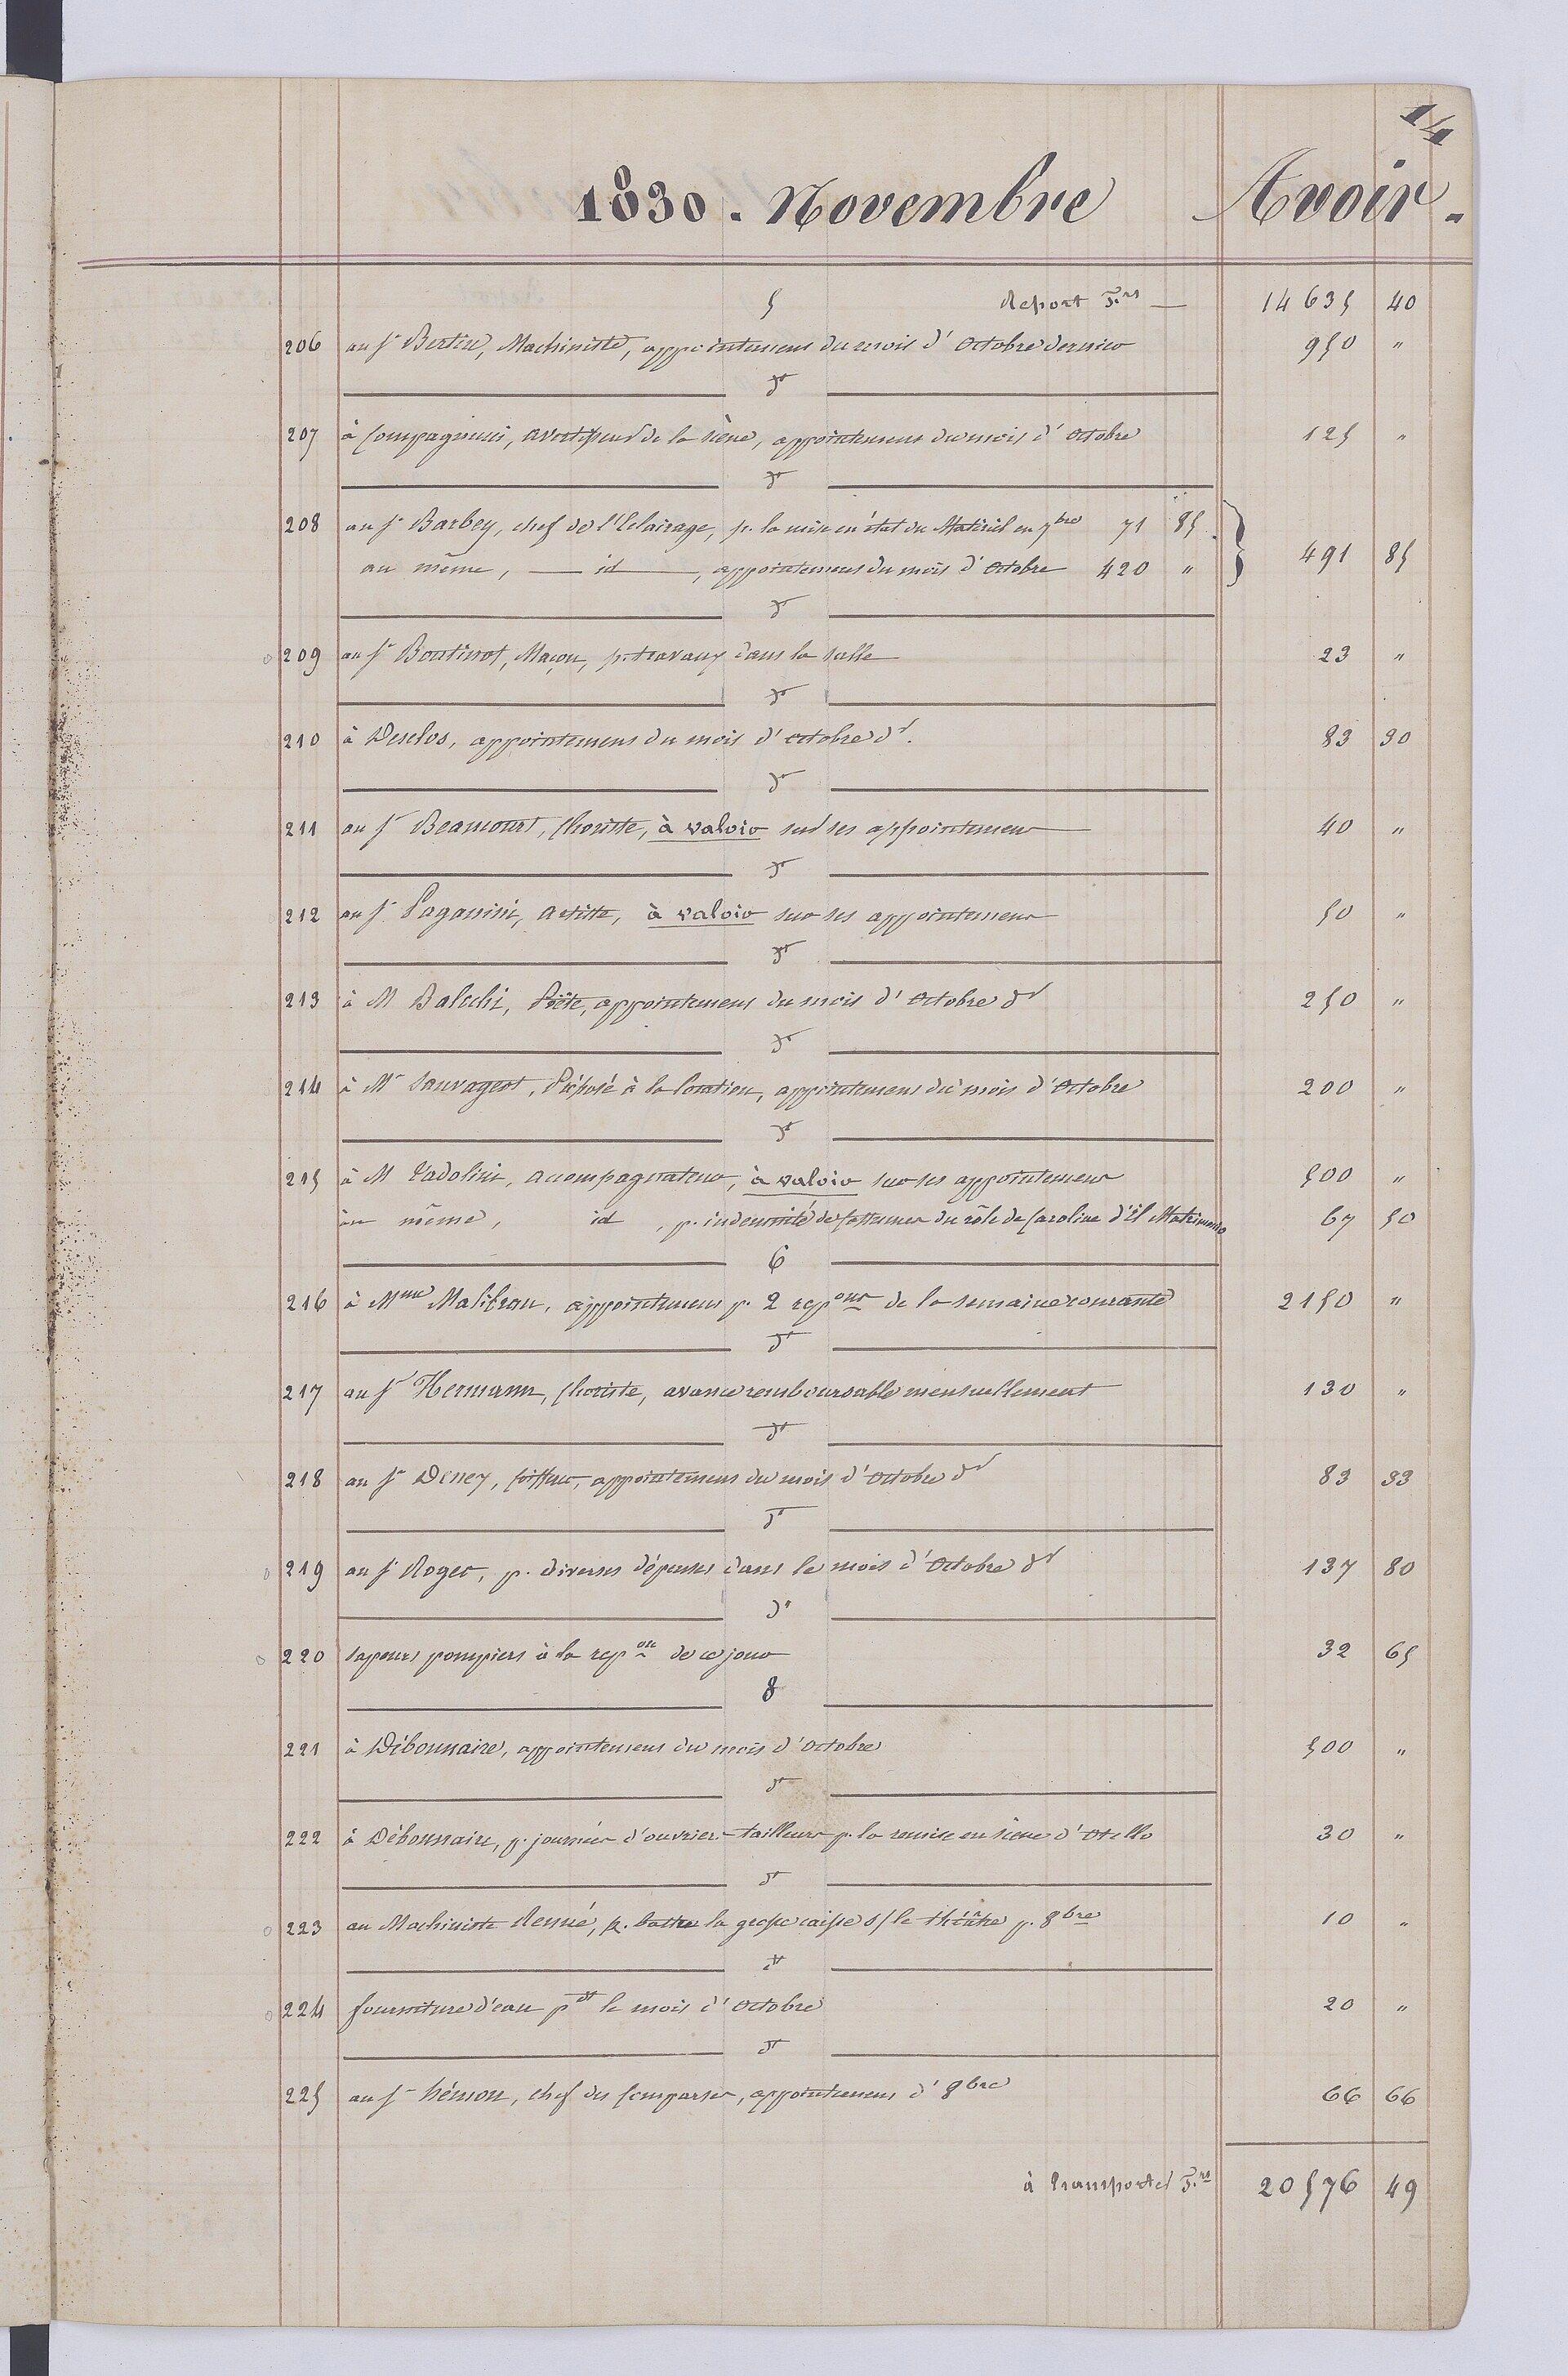 14
1830. Novembre Avoir.
5 Report F.rs 14635 40
206 au Sr Bertin, Machiniste, appointemens du mois d'Octobre dernier 950 "
do
207 à Compagnucci, avertisseur de la scène, appointemens du mois d'Octobre 125 "
do
208 au Sr Barbey, chef de l'Eclairage, p. la mise en état du Matériel en 7bre 71 85
491 85
au même, id, appointemens du mois d'Octobre 420 "
do
209 au Sr Boutinot, Maçon, p. travaux dans la salle 23 "
do
210 à Desclos, appointemens du mois d'octobre dr. 83 30
do
211 au Sr Beaumont, Choriste, à valoir sur ses appointemens 40 "
do
212 au Sr Paganini, Artiste, à valoir sur ses appointemens 50 "
do
213 à M Balochi, Poëte, appointemens du mois d'Octobre dr 250 "
do
214 à Mr Sauvageot, Préposé à la location, appointemens du mois d'Octobre 200 "
do
215 à M Tadolini, accompagnateur, à valoir sur ses appointemens 500 "
au même, id, p. indemnité de costumes du rôle de Caroline d'il Matrimonio 67 50
6
216 à Mme Malibran, appointemens p. 2 repons de la semaine courante 2150 "
do
217 au Sr Hermann, Choriste, avance remboursable mensuellement 130 "
do
218 au Sr Deney, Coiffeur, appointemens du mois d'Octobre dr 83 33
do
219 au Sr Roger, p. diverses dépenses dans le mois d'Octobre dr 137 80
do
220 Sapeurs pompiers à la repon de ce jour 32 65
8
221 à Débonnaire, appointemens du mois d'Octobre 500 "
do
222 à Débonnaire, p. journées d'ouvriers-tailleurs p. la remise en scène d'Otello 30 "
do
223 au Machiniste Renné, p. battre la grosse caisse s/ le théâtre p. 8bre 10 "
do
224 fourniture d'eau pdt le mois d'Octobre 20 "
do
225 au Sr hémon, chef des Comparses, appointemens d'8bre 66 66
à transporter F.rs 20576 49